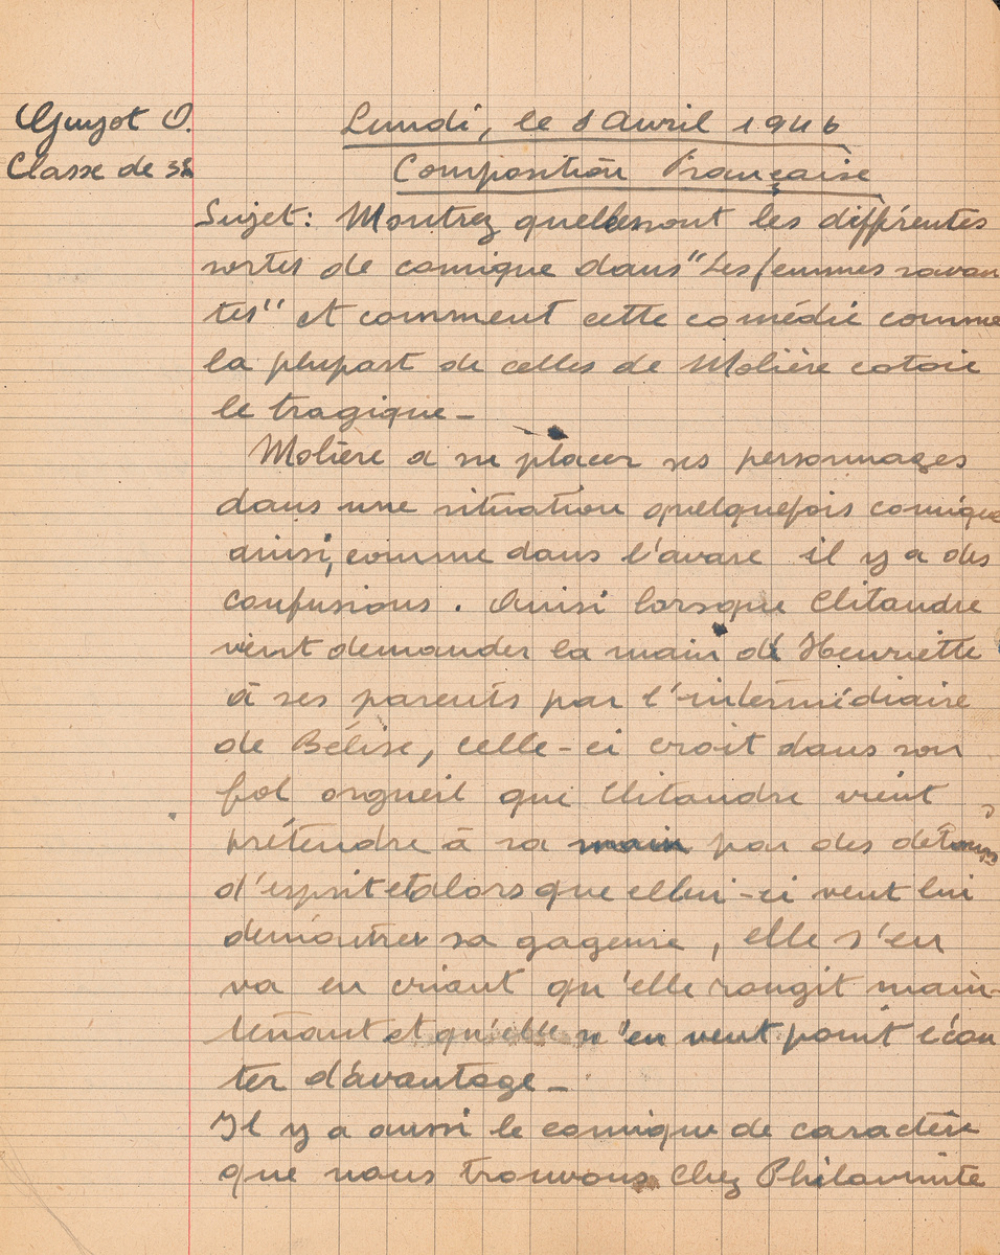 Guyot O.
Classe de 3è
Lundi, le 8 Avril 1946
Composition Française
Sujet: Montrez quelles sont les différentes
sortes de comique dans "Les femmes savan
tes" et comment cette comédie comme
la plupart de celles de Molière cotoie
le tragique_
Molière a su placer ses personnages
dans une situation quelquefois comique
ainsi, comme dans l'avare il y a des
confusions. Ainsi lorsque Clitandre
vient demander la main de Henriette
à ses parents par l'intermédiaire
de Bélise, celle-ci croit dans son
fol orgueil que Clitandre vient
prétendre à sa main par des détours
d'esprit et alors que celui-ci veut lui
démontrer sa gageure, elle s'en
va en criant qu'elle rougit main-
tenant et qu'elle n'en veut point écou
ter d'avantage_
Il y a aussi le comique de caractère
que nous trouvons chez Philaminte